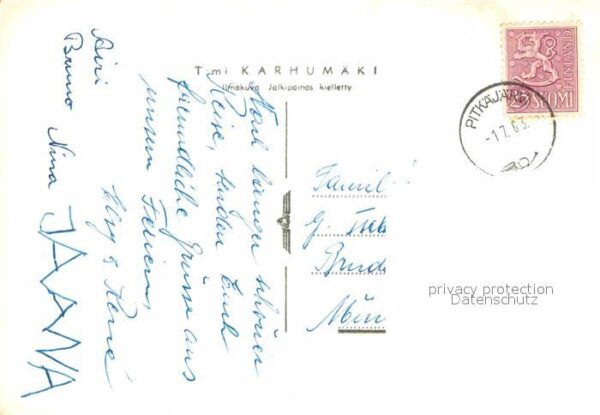 T:mi KARHUMÄKI
Ilmakuva. Jälkipainos kielletty
Nach langer schöner
Reise, senden Euch
freundliche Grüsse aus
unsern Ferien,
Elsy & René
Airi
Bruno Nina JAANA
25 SUOMI
FINLAND
PITKÄJÄRVI
-1.7.63.
Famil
G.
Mün
privacy protection
Datenschutz